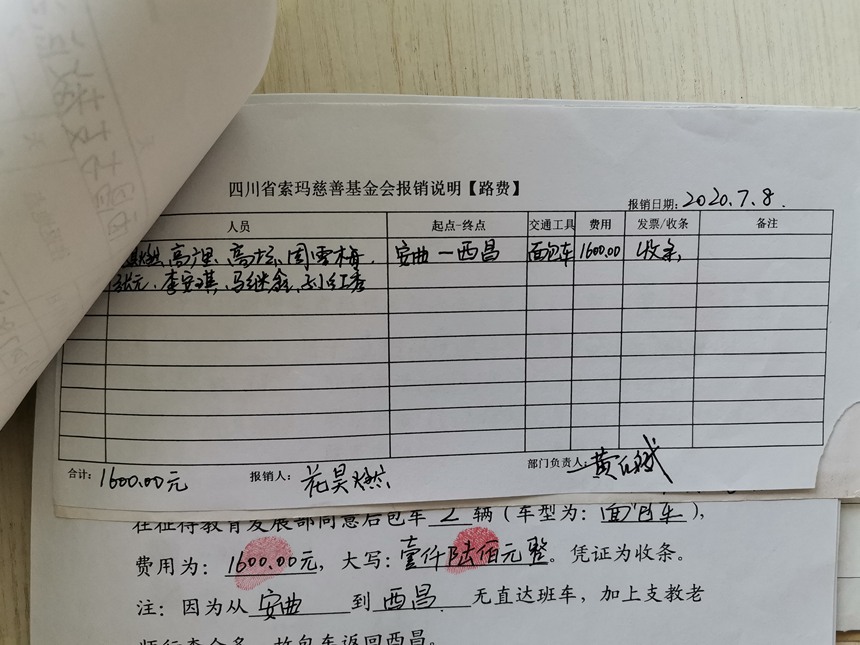 四川省索玛慈善基金会报销说明【路费】
报销日期：2020.7.8.
人员 起点-终点 交通工具 费用 发票/收条 备注
燃、高理、高坛、周雪梅、 安曲—西昌 面包车 1600.00 收条
张元、李安琪、马继鑫、刘红秀
合计：1600.00元 报销人：花昊燃 部门负责人：黄红斌
在征得教育发展部同意后包车 2 辆（车型为：面包车），
费用为：1600.00元，大写：壹仟陆佰元整。凭证为收条。
注：因为从 安曲 到 西昌 无直达班车，加上支教老
师行李众多，故包车返回西昌。